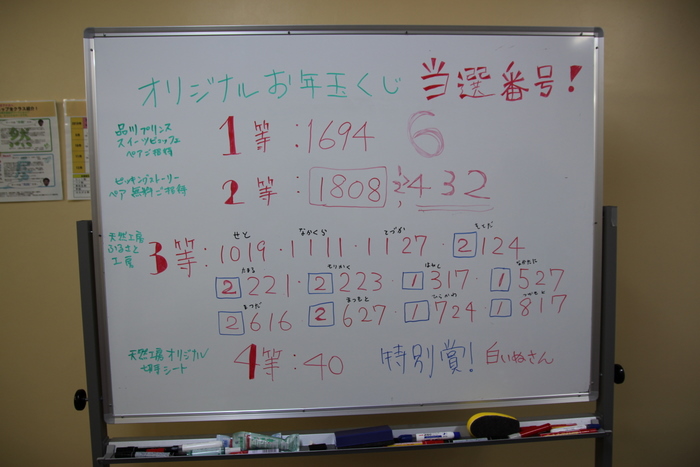 オリジナルお年玉くじ 当選番号!
品川プリンス
スイーツビュッフェ
ペアご招待
1等:1694 6
ピッキングストーリー
ペア無料ご招待
2等:1808 432
天然工房
ふるさと
工房
せと なかくら てづか もてだ
3等:1019・1111・1127・2124
2221・2223・1317・1527
まつだ まつもと
2616・2627・1724・1817
天然工房オリジナル
切手シート
4等:40
特別賞! 白いぬさん
然